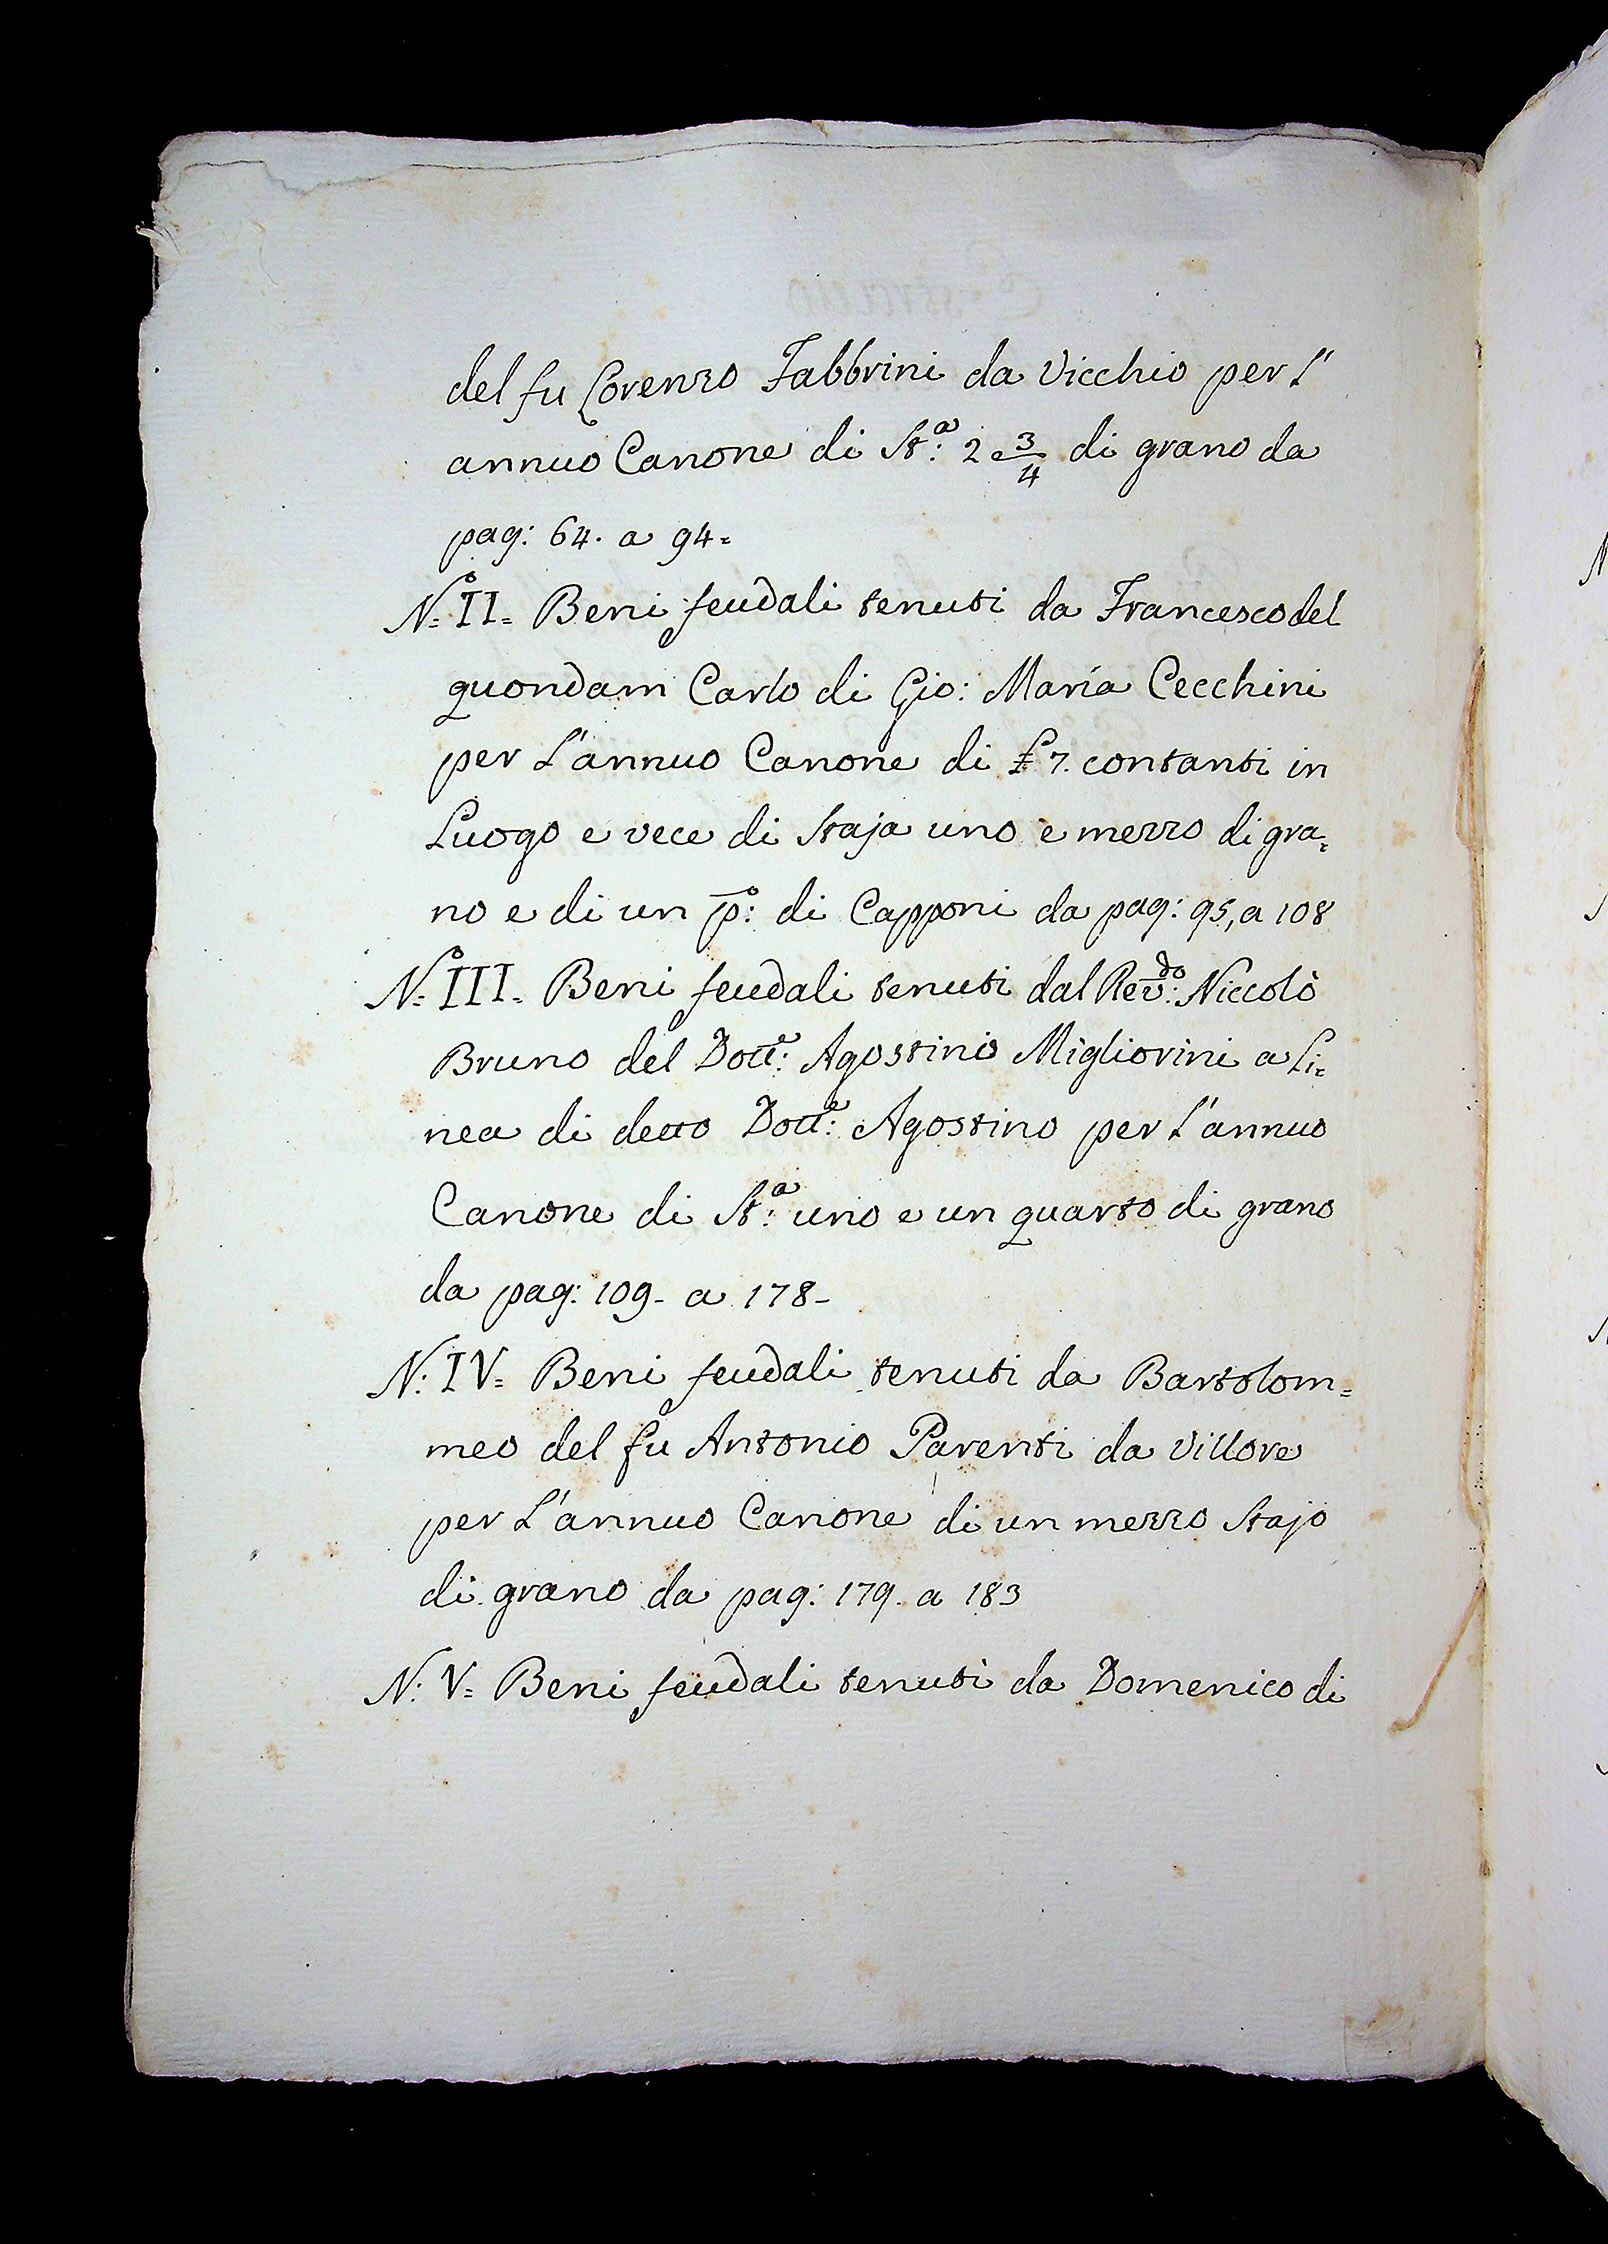 del fu Lorenzo Fabbrini da Vicchio per l'
annuo Canone di St.ª: 2 e 3/4 di grano da
pag: 64. a 94=
N.º= II= Beni feudali tenuti da Francesco del
quondam Carlo di Gio: Maria Cecchini
per L'annuo Canone di £ 7. contanti in
Luogo e vece di Staja uno e mezzo di gra=
no e di un p̄º: di Capponi da pag: 95, a 108
N.º= III= Beni feudali tenuti dal Rev:do Niccolò
Bruno del Dott:e Agostino Migliorini a Li=
nea di detto Dott:e Agostino per L'annuo
Canone di St:ª uno e un quarto di grano
da pag: 109- a 178-
N: IV= Beni feudali tenuti da Bartolom=
meo del fu Antonio Parenti da Villore
per L'annuo Canone di un mezzo Stajo
di grano da pag: 179. a 183
N: V= Beni feudali tenuti da Domenico di